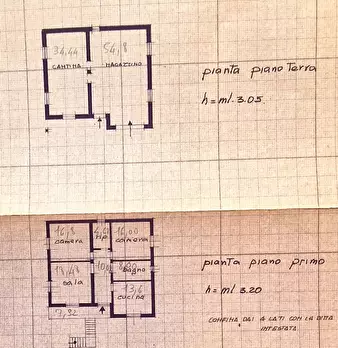 34,44 54,8
CANTINA MAGAZZINO
pianta piano Terra
h = ml. 3.05
16,8 4,60 16,00
camera rip camera
18,48
sala bagno
13,6
cucina
7,92
pianta piano primo
h = ml. 3.20
CONFINA DAI 4 LATI CON LA DITTA
INTESTATA